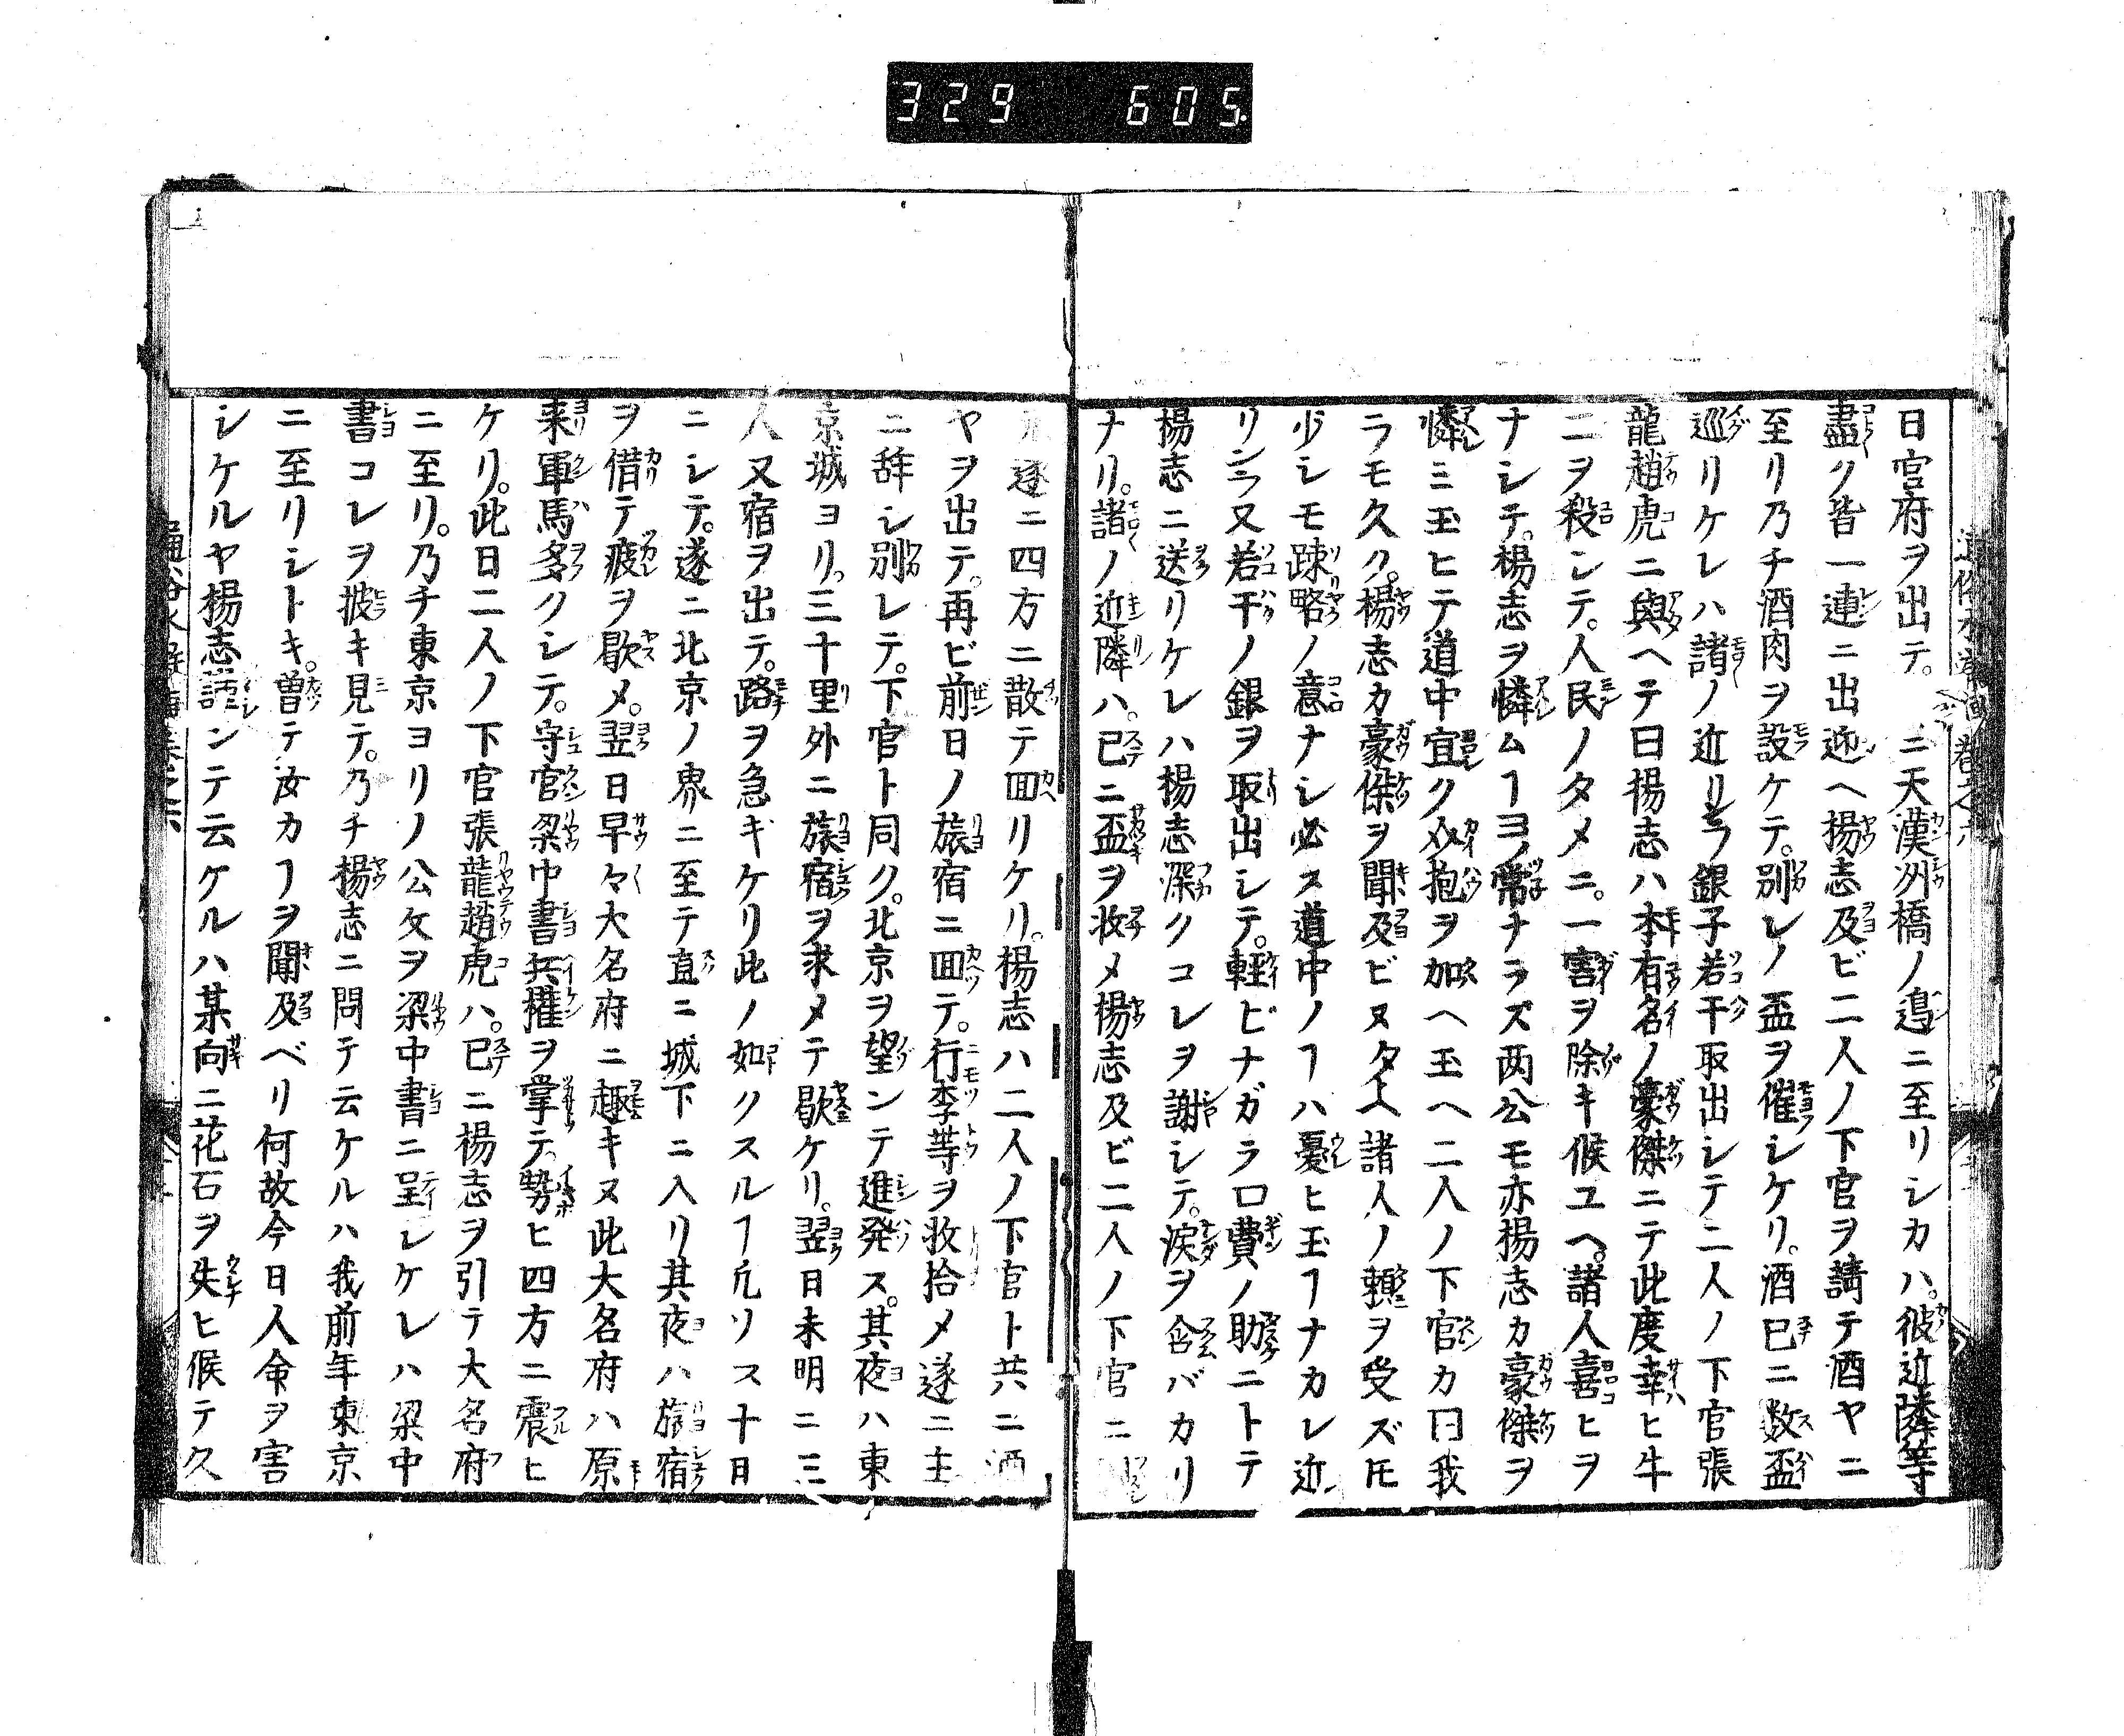 329 605
日官府ヲ出テ。ニ天漢洲橋ノ邉ニ至リシカハ。彼近隣等
盡ク皆一連ニ出迎ヘ楊志及ビ二人ノ下官ヲ請テ酒ヤニ
至リ乃チ酒肉ヲ設ケテ。別レノ盃ヲ催シケリ。酒巳ニ数盃
巡リケレハ諸ノ近リンヨリ銀子若干取出シテ二人ノ下官張
龍趙虎ニ與ヘテ曰楊志ハ本有名ノ豪傑ニテ此度幸ヒ牛
二ヲ殺シテ。人民ノタメニ。一害ヲ除キ候ユヘ。諸人喜ヒヲ
ナシテ。楊志ヲ憐ムヿヨノ常ナラズ两公モ亦楊志カ豪傑ヲ
憐ミ玉ヒテ道中宜ク介抱ヲ加ヘ玉ヘ二人ノ下官カ曰我
ラモ久ク。楊志カ豪傑ヲ聞及ビヌタトヘ諸人ノ頼ヲ受ズ𪜈
少シモ踈略ノ意ナシ必ス道中ノヿハ憂ヒ玉フナカレ近
リンヨリ又若干ノ銀ヲ取出シテ。輕ビナガラロ費ノ助ニトテ
楊志ニ送リケレハ楊志深クコレヲ謝シテ。涙ヲ含バカリ
ナリ。諸ノ近隣ハ。已ニ盃ヲ收メ楊志及ビ二人ノ下官ニ
遂ニ四方ニ散テ囬リケリ。楊志ハ二人ノ下官ト共ニ酒
ヤヲ出テ。再ビ前日ノ旅宿ニ囬テ。行李等ヲ收拾メ遂ニ主
ニ辞シ別レテ。下官ト同ク。北京ヲ望ンテ進発ス。其夜ハ東
京城ヨリ。三十里外ニ旅宿ヲ求メテ歇ケリ。翌日未明ニ三
人又宿ヲ出テ。路ヲ急ギケリ此ノ如クスルヿ凡ソス十日
ニシテ。遂ニ北京ノ界ニ至テ直ニ城下ニ入リ其夜ハ旅宿
ヲ借テ疲ヲ歇メ。翌日早々大名府ニ趣キヌ此大名府ハ原
来軍馬多クシテ。守官梁中書兵權ヲ掌テ。勢ヒ四方ニ震ヒ
ケリ。此日二人ノ下官張龍趙虎ハ。已ニ楊志ヲ引テ大名府
ニ至リ。乃チ東京ヨリノ公文ヲ梁中書ニ呈シケレハ梁中
書コレヲ披キ見テ。乃チ楊志ニ問テ云ケルハ我前年東京
ニ至リシトキ。曽テ汝カヿヲ聞及ベリ何故今日人命ヲ害
シケルヤ楊志謹ンテ云ケルハ某向ニ花石ヲ失ヒ候テ久